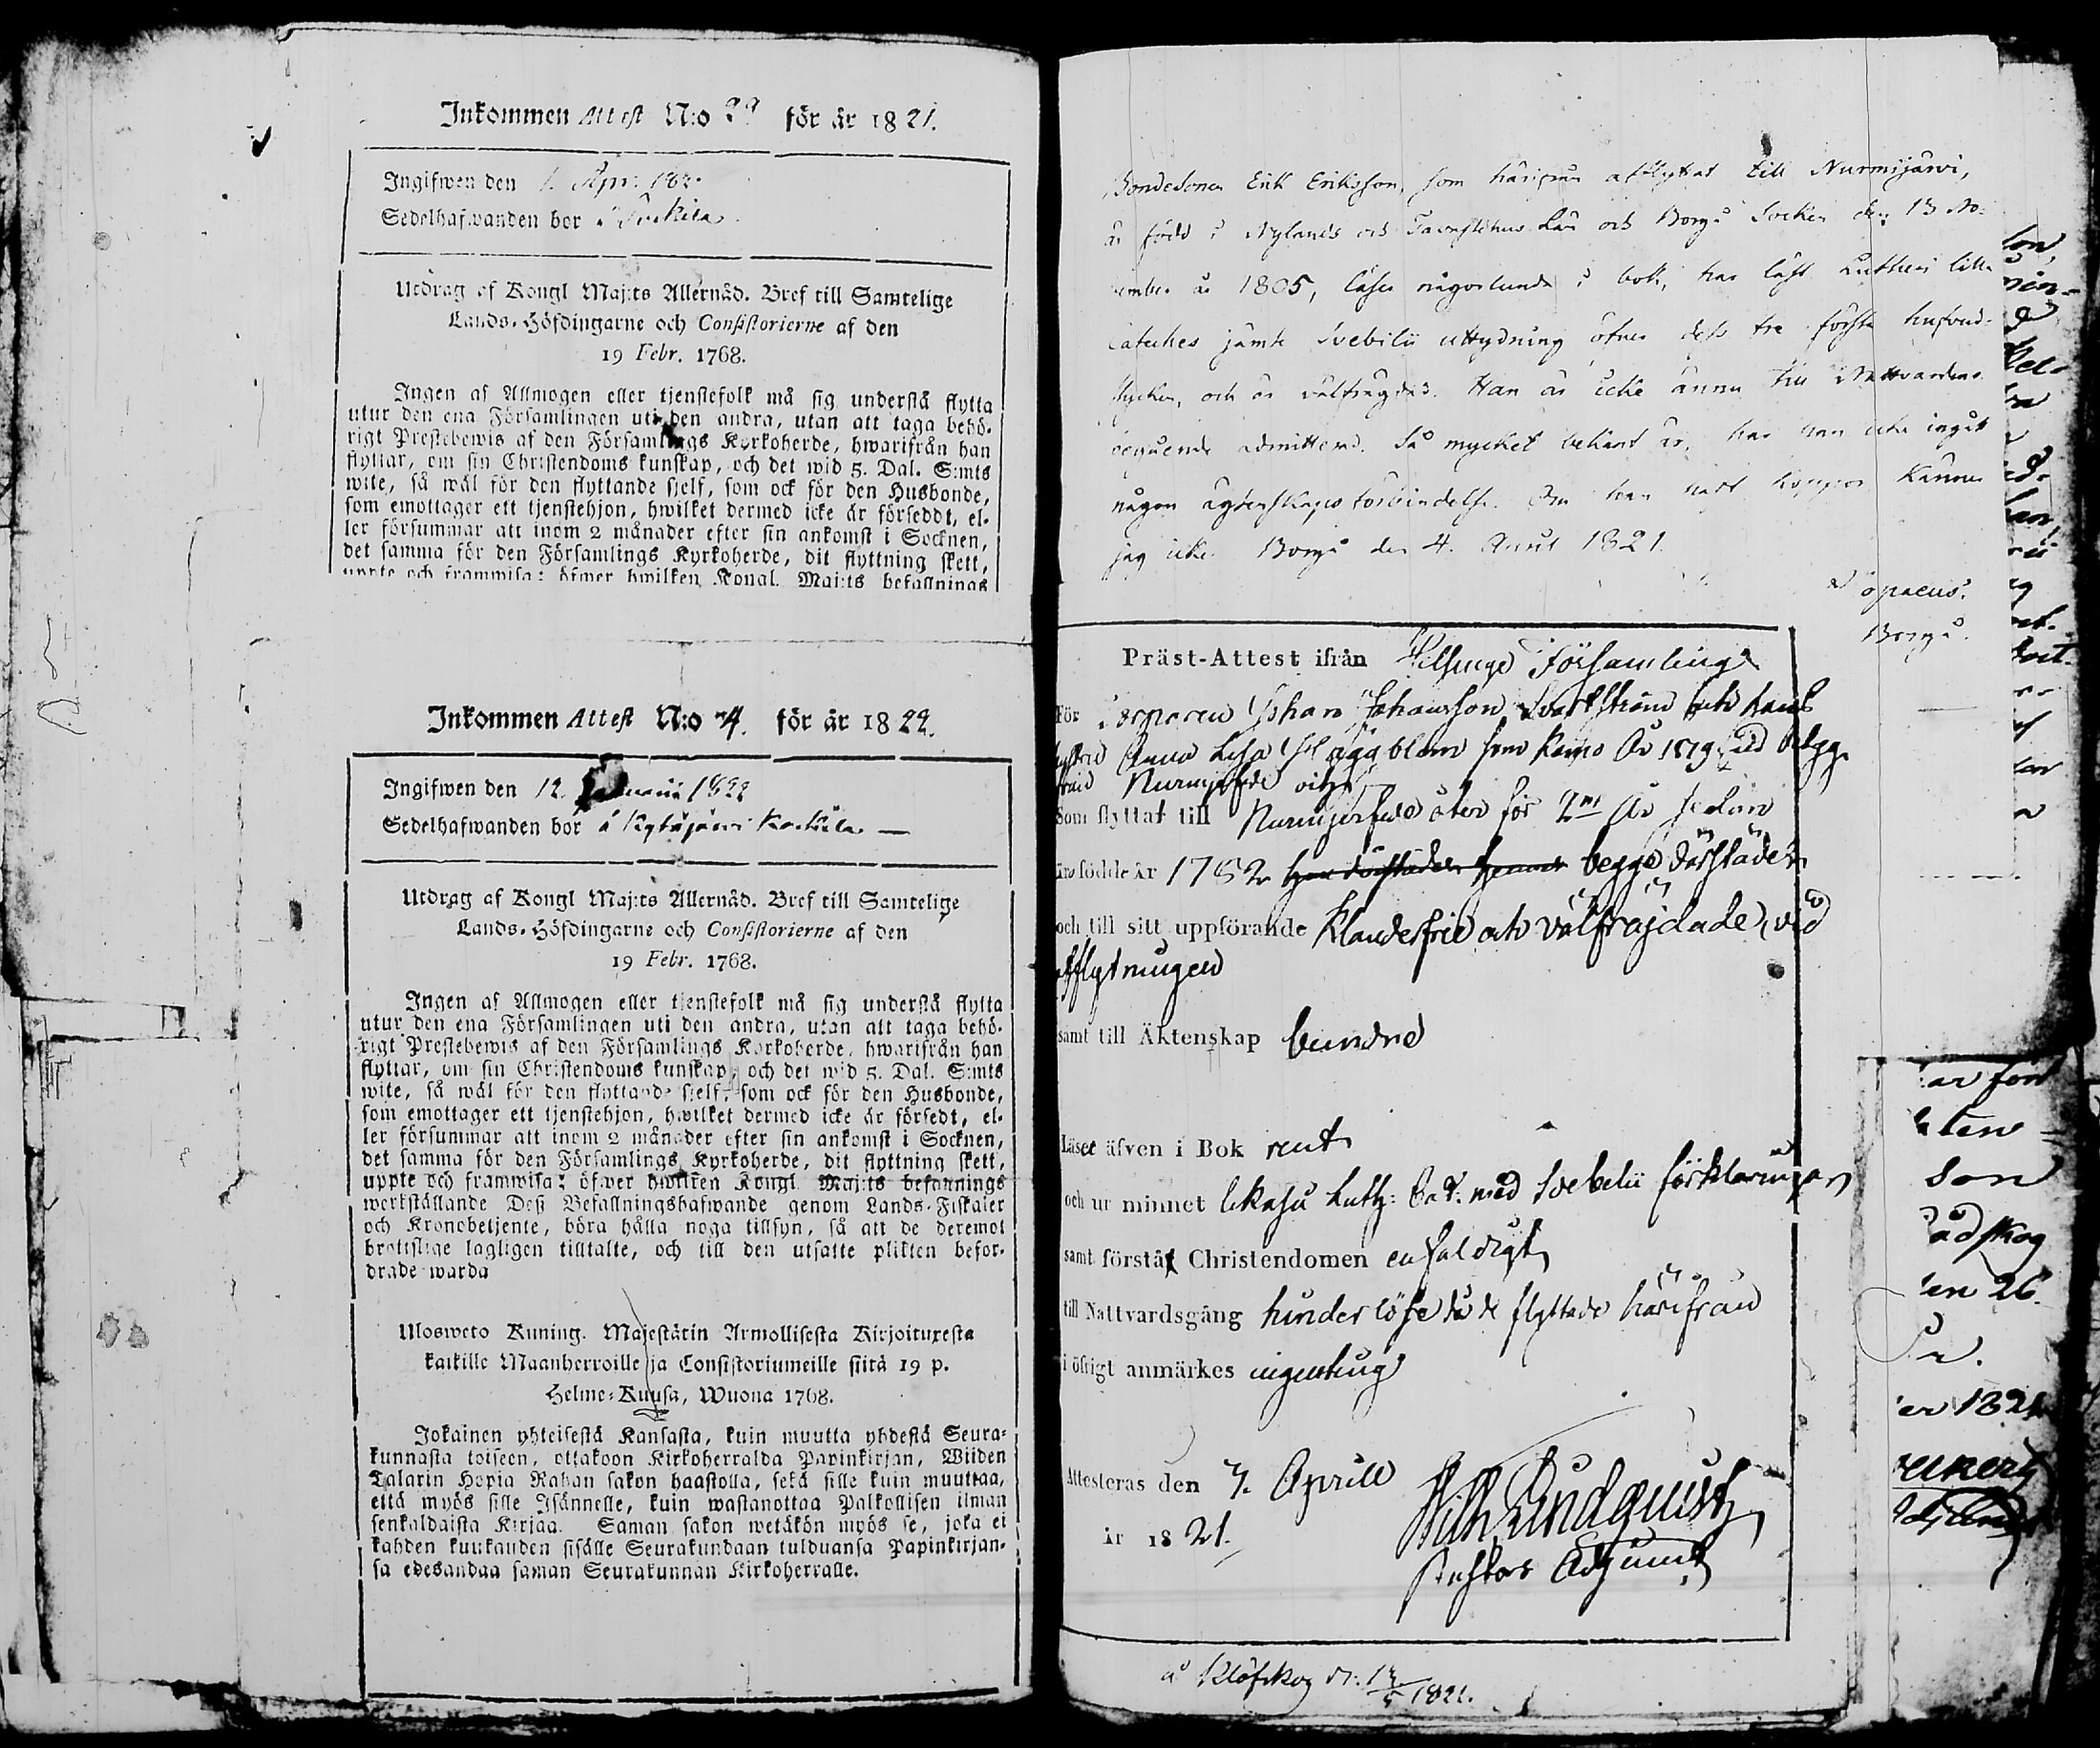 Inkommen Attest N:o 29 för år 1821.
Ingifwen den 1. Apr. 182
Sedelhafwanden bor i
Utdrag af Kongl Maj:ts Allernåd. Bref till Samtelige
Lands-Höfdingarne och Consistorierne af den
19 Febr. 1768.
Ingen af Allmogen eller tjenstefolk må sig understå flytta
utur den ena Församlingen uti den andra, utan att taga behö-
rigt Prestebewis af den Församlings Kyrkoherde, hwarifrån han
flyttar, om sin Christendoms kunskap, och det wid 5. Dal. S:mts
wite, så wäl för den flyttande sjelf, som ock för den Husbonde,
som emottager ett tjenstehjon, hwilket dermed icke är förseddt, el-
ler försummar att inom 2 månader efter sin ankomst i Socknen,
det samma för den Församlings Kyrkoherde, dit flyttning skett,
uppte och framwisa: öfwer hwilken Kongl. Maj:ts befallnings
Inkommen Attest N:o 4. för år 1822.
Ingifwen den 12. Januarii 1822
Sedelhafwanden bor å Kytäjärvi
Utdrag af Kongl Maj:ts Allernåd. Bref till Samtelige
Lands-Höfdingarne och Consistorierne af den
19 Febr. 1768.
Ingen af Allmogen eller tjenstefolk må sig understå flytta
utur den ena Församlingen uti den andra, utan att taga behö-
rigt Prestebewis af den Församlings Kyrkoherde, hwarifrån han
flyttar, om sin Christendoms kunskap, och det wid 5. Dal. S:mts
wite, så wäl för den flyttande sjelf, som ock för den Husbonde,
som emottager ett tjenstehjon, hwilket dermed icke är försedt, el-
ler försummar att inom 2 månader efter sin ankomst i Socknen,
det samma för den Församlings Kyrkoherde, dit flyttning skett,
uppte och framwisa: öfwer hwilken Kongl. Maj:ts befallnings
werkställande Deß Befallningshafwande genom Lands-Fiskaler
och Kronobetjente, böra hålla noga tillsyn, så att de deremot
brottslige lagligen tilltalte, och till den utsatte plikten befor-
drade warda
Ulosweto Kuning. Majestätin Armollisesta Kirjoituxesta
kaikille Maanherroille ja Consistoriumeille siitä 19 p.
Helme-Kuusa, Wuona 1768.
Jokainen yhteisestä Kansasta, kuin muutta yhdestä Seura-
kunnasta toiseen, ottakoon Kirkoherralda Papinkirjan, Wiiden
Talarin Hopia Rahan sakon haastolla, sekä sille kuin muuttaa,
että myös sille Isännelle, kuin wastanottaa Palkollisen ilman
senkaldaista Kirjaa. Saman sakon wetäkön myös se, joka ei
kahden kuukauden sisälle Seurakundaan tulduansa Papinkirjan-
sa edesandaa saman Seurakunnan Kirkoherralle.
Bondesonen Erik Eriksson, som härifrån afflyttat till Nurmijärvi,
är född i Nylands och Tavastehus Län och Borgå Socken den 13 No-
vember år 1805, läser någorlunda i bok, har läst Lutheri lilla
Cateches jämte Svebilii uttydning öfver dess tre första hufvud-
stycken, och är välfrägdad. Han är icke ännu till Nattvardens
begående admitterad. Så mycket bekant är, har han icke ingått
någon ägtenskaps förbindelse. Om han haft koppor känner
jag icke. Borgå den 4. April 1821.
Borgå.
Präst-Attest ifrån Helsinge Församling
För Torparen Johan Johansson och hans
hustru Anna Lisa Häggblom som År 1819 begge
ifrån Nurmijerfvi
Som flyttat till Nurmijerfvi åter för 2ne År sedan
äro födde år 1782 begge därstädes
och till sitt uppförande Klanderfrie och välfräjdade, vid
afflytningen
samt till Äktenskap bundne
Läser äfven i Bok rent
och ur minnet likaså Luth: Cat. med Svebelii förklaringar
samt förstår Christendomen enfaldigt
till Nattvardsgång hinderlöse då de flyttade härifrån
i öfrigt anmärkes ingenting
Attesteras den 7. Aprill
år 1821.
Wilh Lindqvist
Pastors Adjunct
å Klöfskog d: 13/5 1821.
son
en 26
er 1821